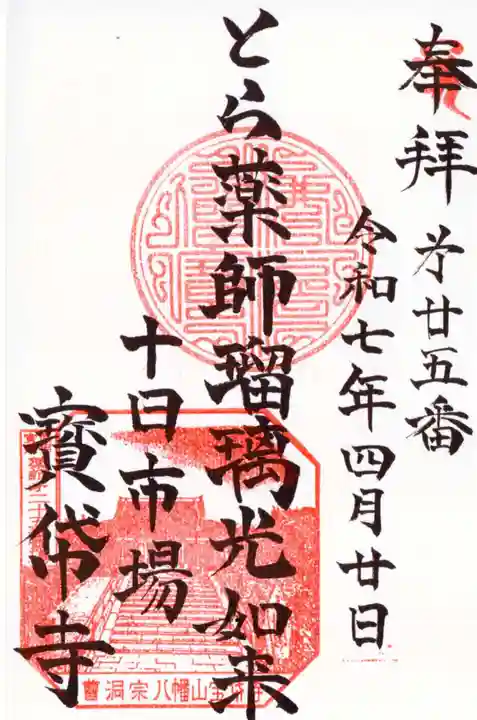 奉拝
㐧廿五番
令和七年四月廿日
とら薬師瑠璃光如来
十日市場
寳帒寺
曹洞宗八幡山宝帒寺